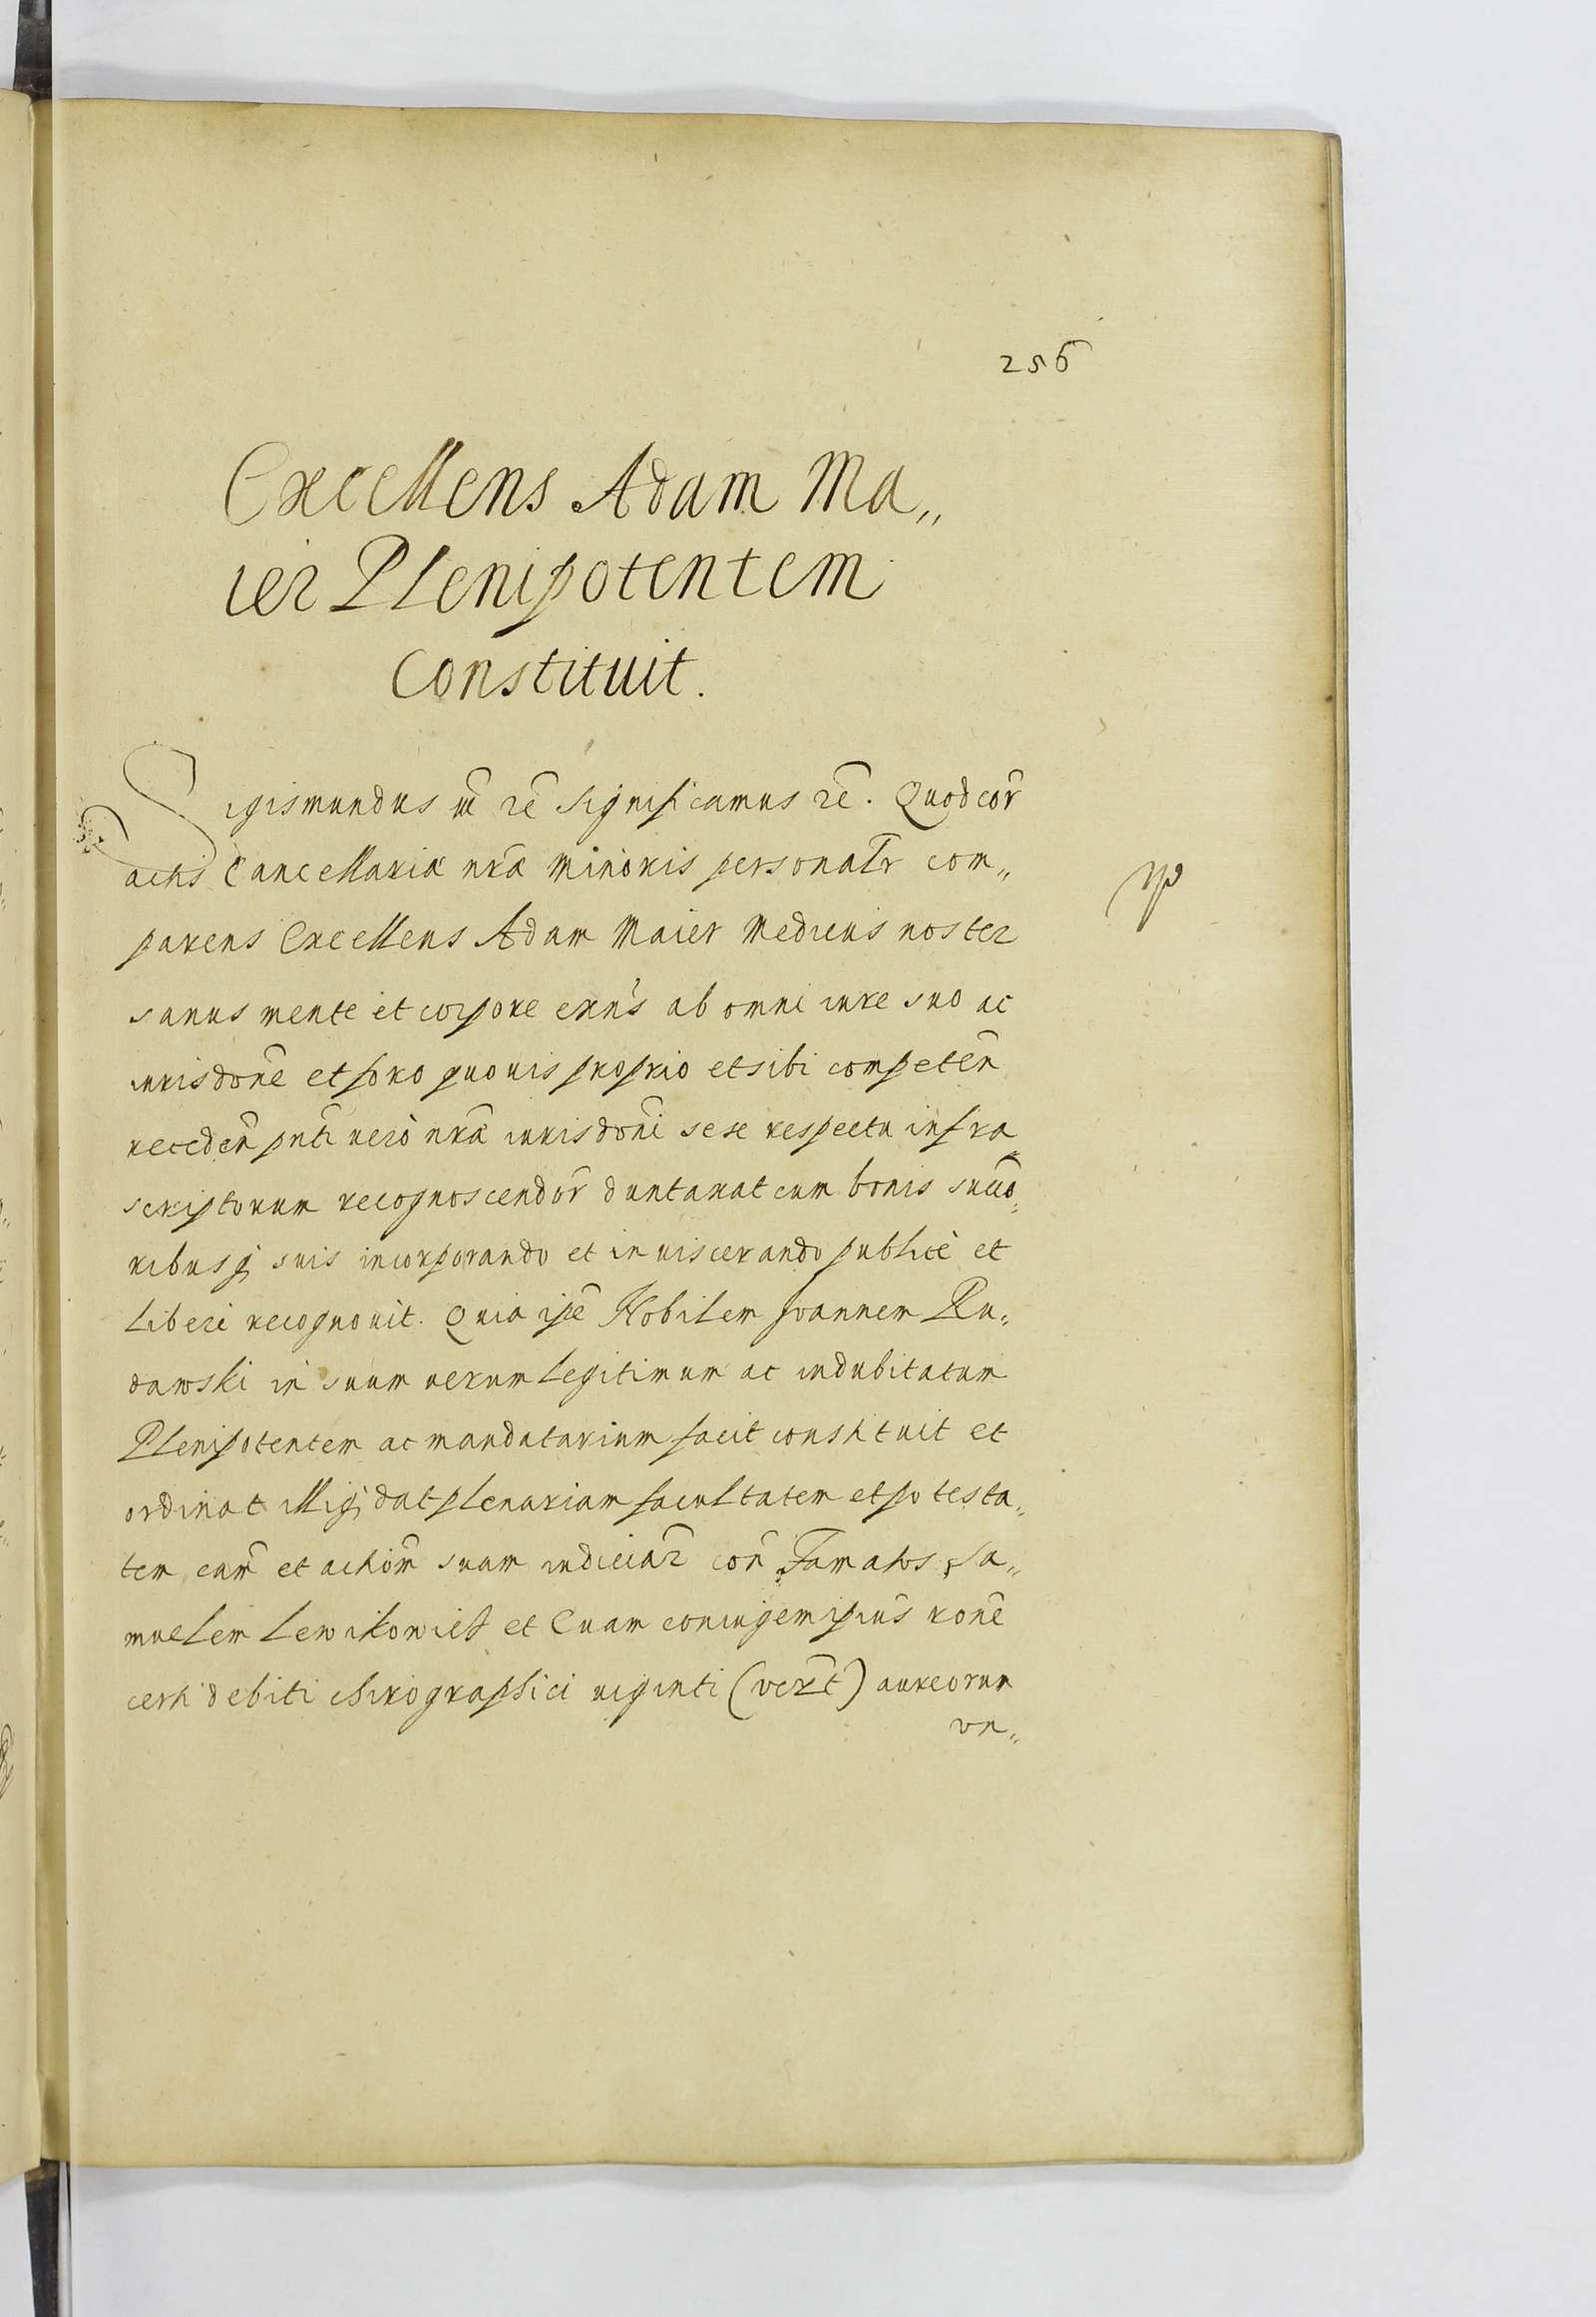 256
Excellens Adam Ma„
ier Plenipotentem
Constituit.
Sigismundus III etc̄ Significamus etc̄. Quod cor̄
actis Cancellariæ nr̄æ Minoris personalr̄ com„
parens Excellens Adam Maier Medicus noster
sanus mente et corpore exn̄s ab omni iure suo ac
iurisdon̄e et foro quouis proprio et sibi competen̄
receden̄ pn̄ti uerò nr̄æ iurisdon̄i sese respectu infra
scriptorum recognoscendor̄ duntaxat cum bonis succo„
ribusq; suis incorporando et inuiscerando publicè et
liberè recognouit. Quia ip̄e Nobilem Ioannem Ru„
dawski in suum uerum legitimum ac indubitatum
Plenipotentem ac mandatarium facit constituit et
ordinat illiq; dat plenariam facultatem et potesta„
tem cām et actiōm suam iudiciar̄ con̄ Famatos Sa„
muelem Lewikowicz et Euam coniugem ipiūs ron̄e
certi debiti chirographici uiginti (verzt̄) aureorum
vn„